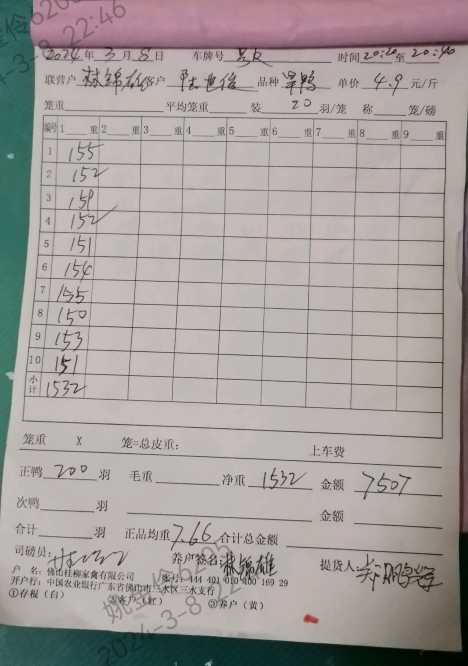 2024年3月8日 车牌号 时间20:20至20:40
联营户 林锦雄 客户 品种 旱鸭 单价 4.9 元/斤
笼重 平均笼重 装 20 羽/笼 称 笼/磅
编号 1 重 2 重 3 重 4 重 5 重 6 重 7 重 8 重 9 重
1 155
2 152
3 159
4 152
5 151
6 154
7 155
8 150
9 153
10 151
小计 1532
笼重 X 笼=总皮重: 上车费
正鸭 200 羽 毛重 净重 1532 金额 7507
次鸭 羽 金额
合计 羽 正品均重 7.66 合计总金额
司磅员: 养户签名 林锦雄 提货人:
户 名:佛山桂柳家禽有限公司 账号:444 401 010 400 169 29
开户行:中国农业银行广东省佛山市三水区三水支行
①存根(白) ②客户(红) ③养户(黄)
2024-3-8 22:46